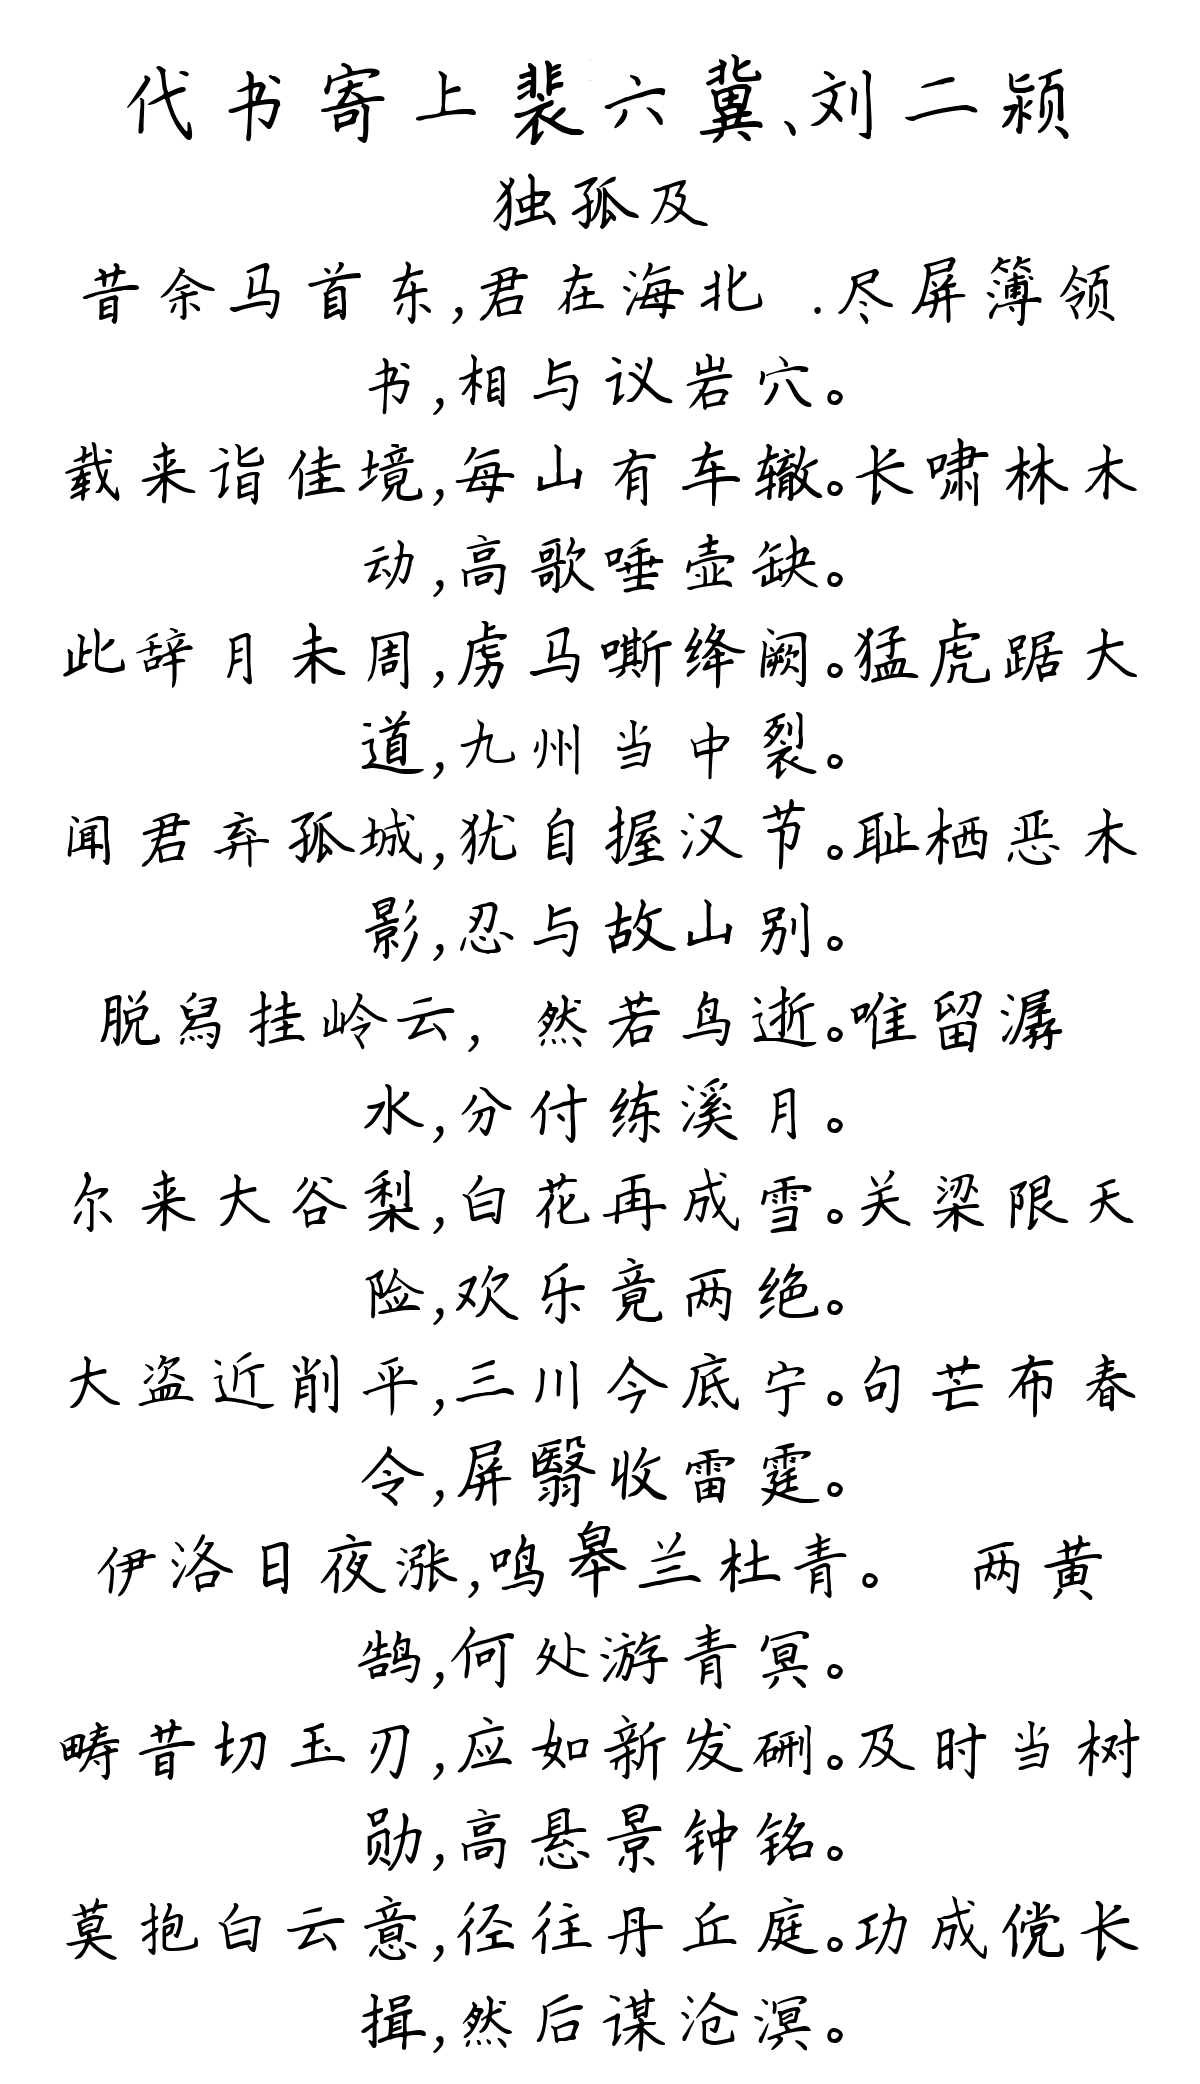 代书寄上裴六冀、刘二颍
独孤及
昔余马首东,君在海北 .尽屏簿领
书,相与议岩穴。
载来诣佳境,每山有车辙。长啸林木
动,高歌唾壶缺。
此辞月未周,虏马嘶绛阙。猛虎踞大
道,九州当中裂。
闻君弃孤城,犹自握汉节。耻栖恶木
影,忍与故山别。
脱舄挂岭云, 然若鸟逝。唯留潺
水,分付练溪月。
尔来大谷梨,白花再成雪。关梁限天
险,欢乐竟两绝。
大盗近削平,三川今底宁。句芒布春
令,屏翳收雷霆。
伊洛日夜涨,鸣皋兰杜青。 两黄
鹄,何处游青冥。
畴昔切玉刃,应如新发硎。及时当树
勋,高悬景钟铭。
莫抱白云意,径往丹丘庭。功成傥长
揖,然后谋沧溟。